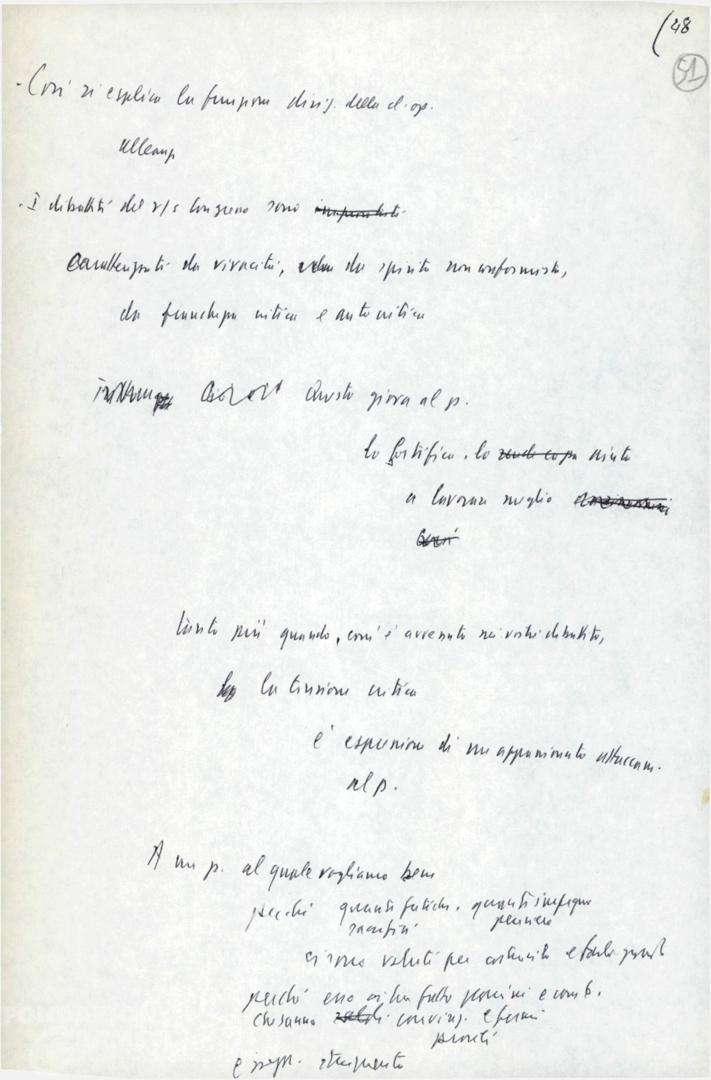 (48
51
- Così si esplica la funzione dirig. della cl. op.
alleanz
- I dibattiti del vs Congresso sono
caratterizzati da vivacità, da spirito non conformista,
da franchezza critica e autocritica
Questo giova al p.
lo fortifica, lo aiuta
a lavorare meglio
Tanto più quando, com'è avvenuto nei vostri dibattiti,
la tensione critica
è espressione di un appassionato attaccam.
al p.
A un p. al quale vogliamo bene
perché quanti fatiche, quanti impegni
sacrifici pensiero
ci sono voluti per costruirlo e farlo grande
perché esso ci ha fatto uomini e comb.
che sanno conving. e fermi
e